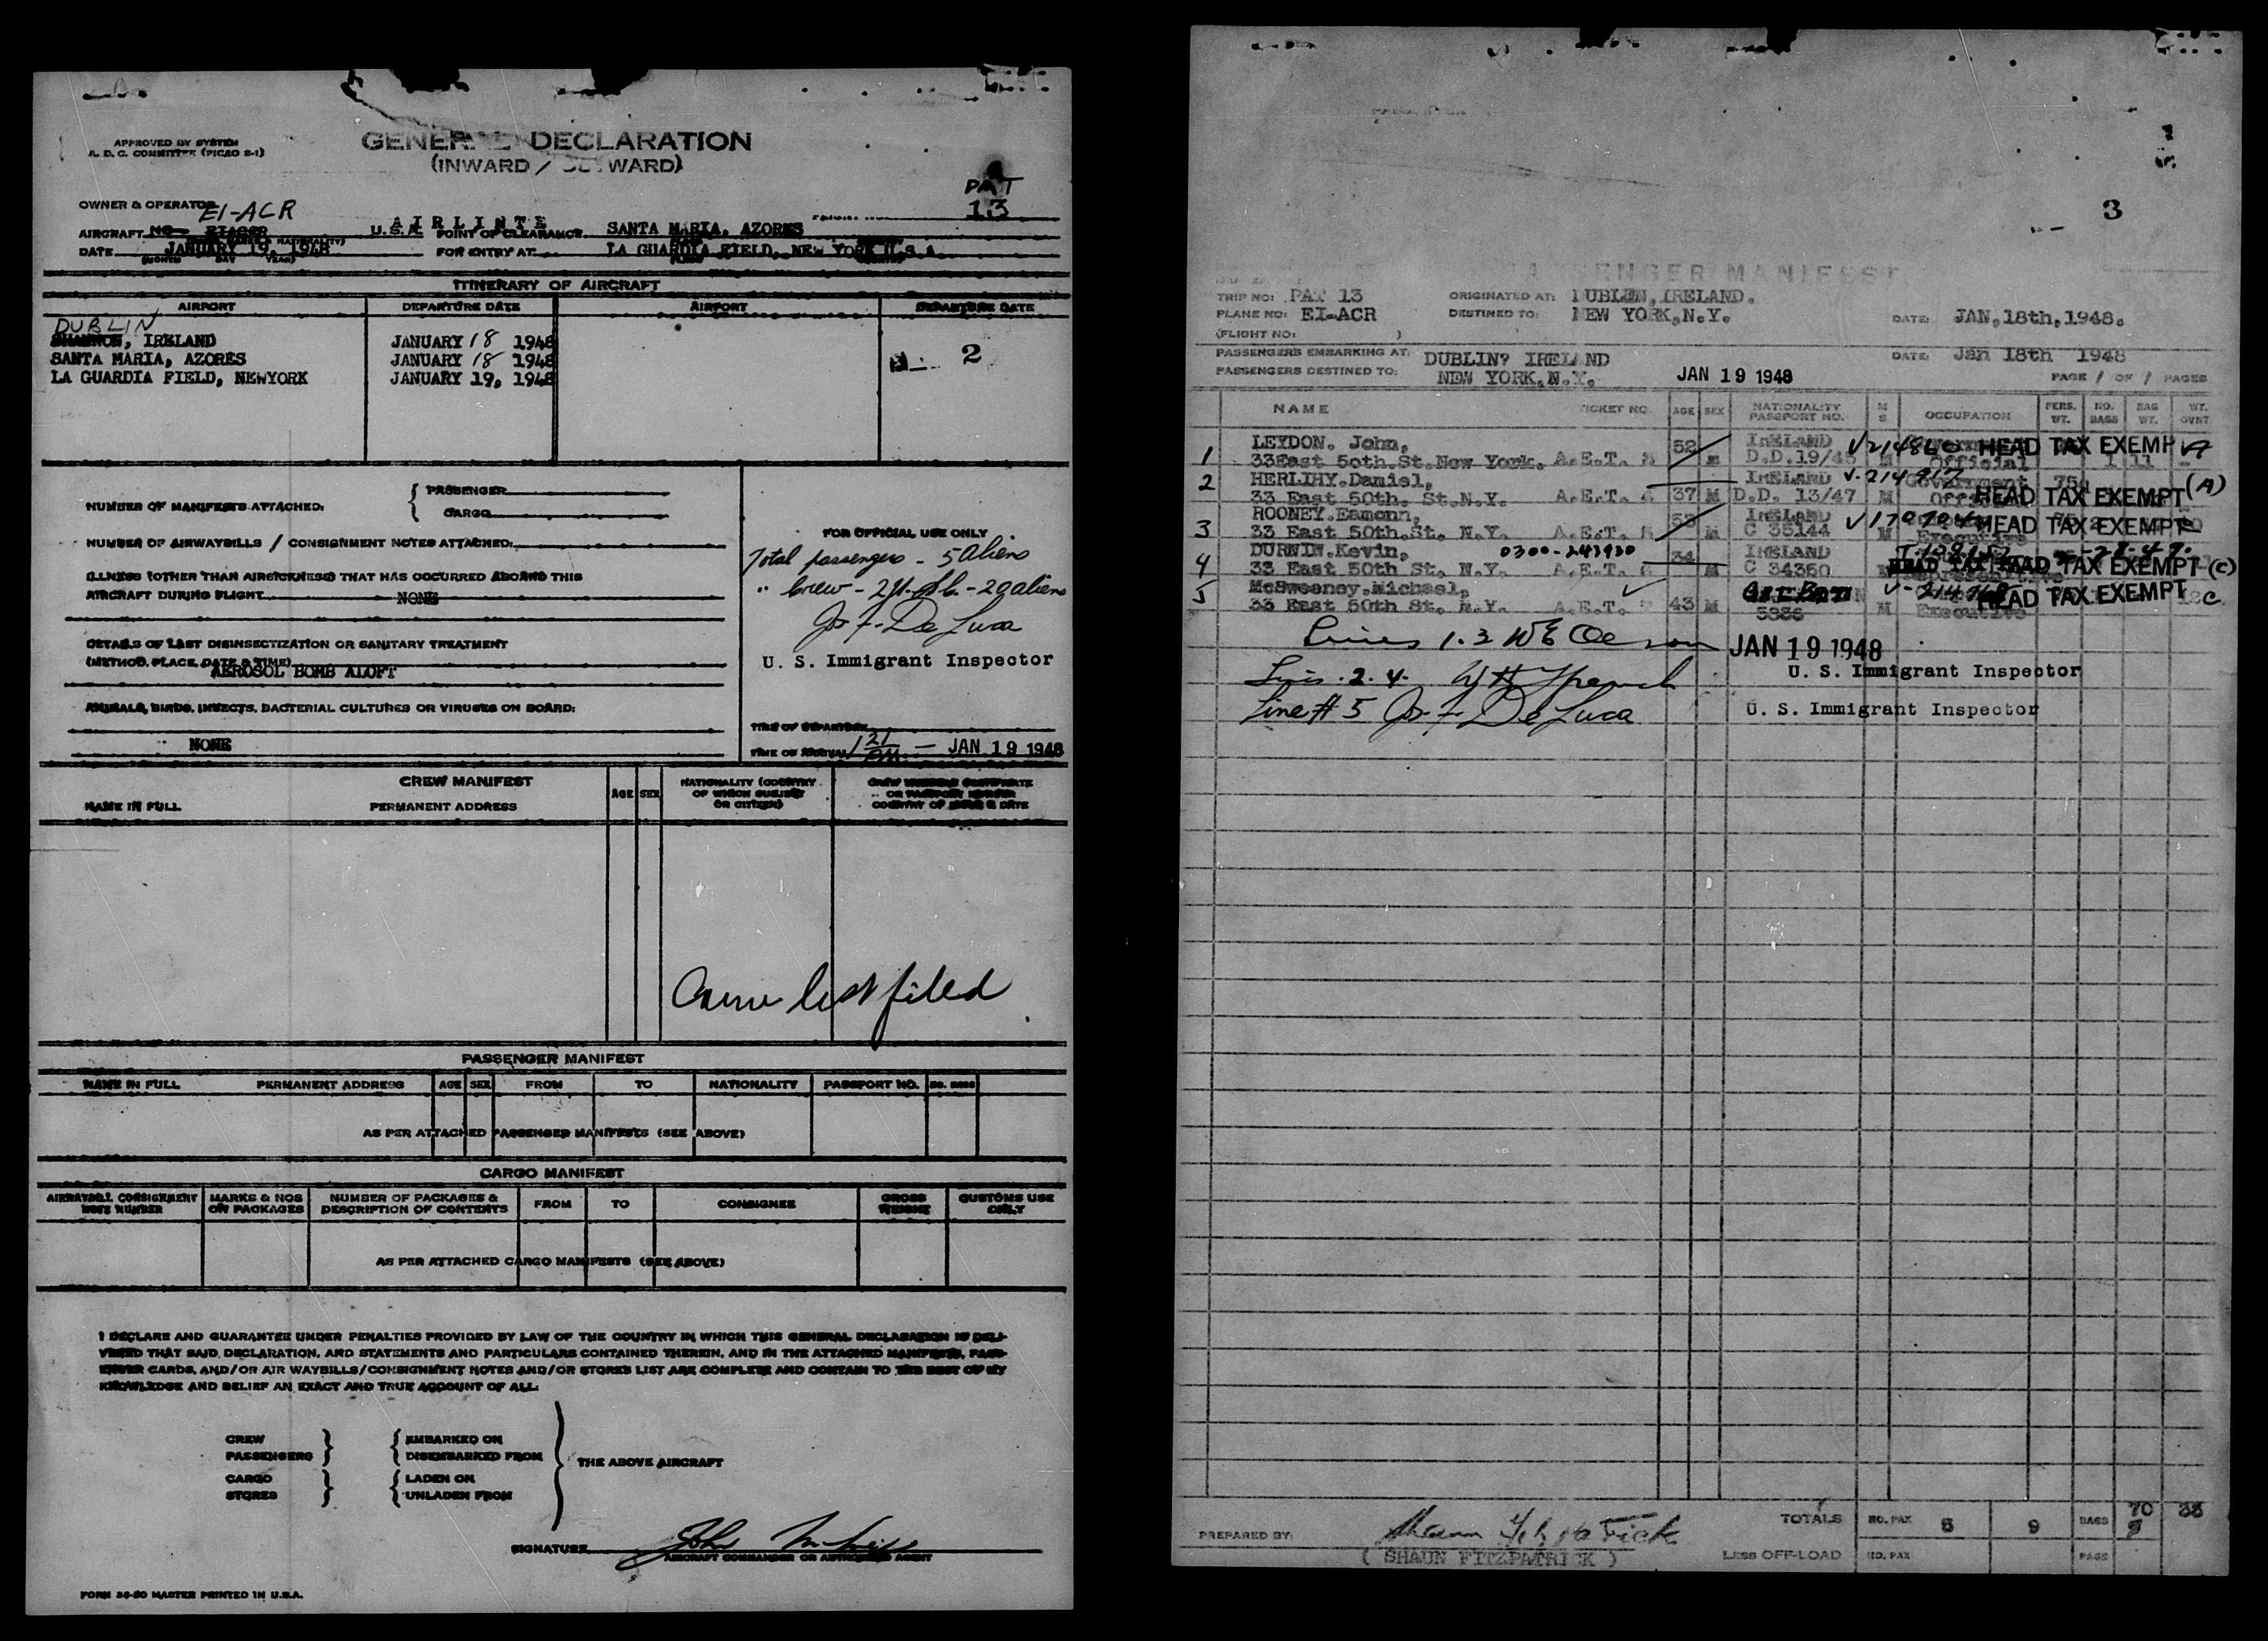 APPROVED BY SYSTEM
A. D. C. COMMITTEE (PICAO 2-1)
GENERAL DECLARATION
(INWARD / OUTWARD)
PAT
13
OWNER & OPERATOR
EI-ACR
AIRLINTE
AIRCRAFT NO
U.S.A. POINT OF CLEARANCE SANTA MARIA, AZORES
DATE JANUARY 19, 1948 FOR ENTRY AT LA GUARDIA FIELD, NEW YORK U.S.A.
(MONTH DAY YEAR)
ITINERARY OF AIRCRAFT
AIRPORT DEPARTURE DATE AIRPORT DEPARTURE DATE
DUBLIN
SHANNON, IRELAND JANUARY 18 1948
SANTA MARIA, AZORES JANUARY 18 1948
LA GUARDIA FIELD, NEWYORK JANUARY 19, 1948
2
NUMBER OF MANIFESTS ATTACHED: { PASSENGER
CARGO
NUMBER OF AIRWAYBILLS / CONSIGNMENT NOTES ATTACHED:
ILLNESS (OTHER THAN AIRSICKNESS) THAT HAS OCCURRED ABOARD THIS
AIRCRAFT DURING FLIGHT NONE
DETAILS OF LAST DISINSECTIZATION OR SANITARY TREATMENT
(METHOD, PLACE, DATE & TIME)
AEROSOL BOMB ALOFT
ANIMALS, BIRDS, INSECTS, BACTERIAL CULTURES OR VIRUSES ON BOARD:
NONE
FOR OFFICIAL USE ONLY
Total passengers - 5 Aliens
" Crew - 20 aliens
Jos. F. De Luca
U. S. Immigrant Inspector
TIME OF DEPARTURE
TIME OF ARRIVAL 1 21 PM. — JAN 19 1948
CREW MANIFEST
NAME IN FULL PERMANENT ADDRESS AGE SEX NATIONALITY (COUNTRY OF WHICH SUBJECT OR CITIZEN) CREW MEMBERS CERTIFICATE OR PASSPORT NUMBER COUNTRY OF ISSUE & DATE
Crew list filed
PASSENGER MANIFEST
NAME IN FULL PERMANENT ADDRESS AGE SEX FROM TO NATIONALITY PASSPORT NO. NO. BAGS
AS PER ATTACHED PASSENGER MANIFESTS (SEE ABOVE)
CARGO MANIFEST
AIRWAYBILL CONSIGNMENT NOTE NUMBER MARKS & NOS ON PACKAGES NUMBER OF PACKAGES & DESCRIPTION OF CONTENTS FROM TO CONSIGNEE GROSS WEIGHT CUSTOMS USE ONLY
AS PER ATTACHED CARGO MANIFESTS (SEE ABOVE)
I DECLARE AND GUARANTEE UNDER PENALTIES PROVIDED BY LAW OF THE COUNTRY IN WHICH THIS GENERAL DECLARATION IS DELI-
VERED THAT SAID DECLARATION, AND STATEMENTS AND PARTICULARS CONTAINED THEREIN, AND IN THE ATTACHED MANIFESTS, PASS-
ENGER CARDS, AND/OR AIR WAYBILLS/CONSIGNMENT NOTES AND/OR STORES LIST ARE COMPLETE AND CONTAIN TO THE BEST OF MY
KNOWLEDGE AND BELIEF AN EXACT AND TRUE ACCOUNT OF ALL:
CREW
PASSENGERS
CARGO
STORES
EMBARKED ON
DISEMBARKED FROM
LADEN ON
UNLADEN FROM
THE ABOVE AIRCRAFT
SIGNATURE John
AIRCRAFT COMMANDER OR AUTHORIZED AGENT
FORM 36-20 MASTER PRINTED IN U.S.A.
3
PASSENGER MANIFEST
TRIP NO: PAT 13 ORIGINATED AT: DUBLIN, IRELAND.
PLANE NO: EI-ACR DESTINED TO: NEW YORK, N.Y. DATE: JAN, 18th, 1948.
(FLIGHT NO: )
PASSENGERS EMBARKING AT: DUBLIN? IRELAND DATE: Jan 18th 1948
PASSENGERS DESTINED TO: NEW YORK, N.Y. JAN 19 1948 PAGE / OF / PAGES
NAME TICKET NO. AGE SEX NATIONALITY PASSPORT NO. M S OCCUPATION PERS. WT. NO. BAGS BAG WT. WT. OVNT
1 LEYDON. John, 52 IRELAND V214860 HEAD TAX EXEMP
33East 50th. St. New York. A.E.T. M D.D. 19/45 M Official 1 11
2 HERLIHY. Daniel, IRELAND Government
33 East 50th. St. N.Y. A.E.T. 37 M D.D. 13/47 M HEAD TAX EXEMPT (A)
3 ROONEY. Eamonn, 53 IRELAND HEAD TAX EXEMPT
33 East 50th. St. N.Y. A.E.T. M C 35144 M Executive
4 DURNIN. Kevin, 0300-243930 34 IRELAND
33 East 50th St. N.Y. A.E.T. M C 34360 M HEAD TAX EXEMPT (C)
5 McSweeney. Michael, HEAD TAX EXEMPT C
33 East 50th St. N.Y. A.E.T. 43 M 5386 M Executive
Lines 1.3 JAN 19 1948
U. S. Immigrant Inspector
Lines 2.4.
Line # 5 Jos. F. De Luca U. S. Immigrant Inspector
PREPARED BY: Shaun Fitzpatrick
( SHAUN FITZPATRICK )
TOTALS NO. PAX 5 9 BAGS 70
LESS OFF-LOAD NO. PAX BAGS